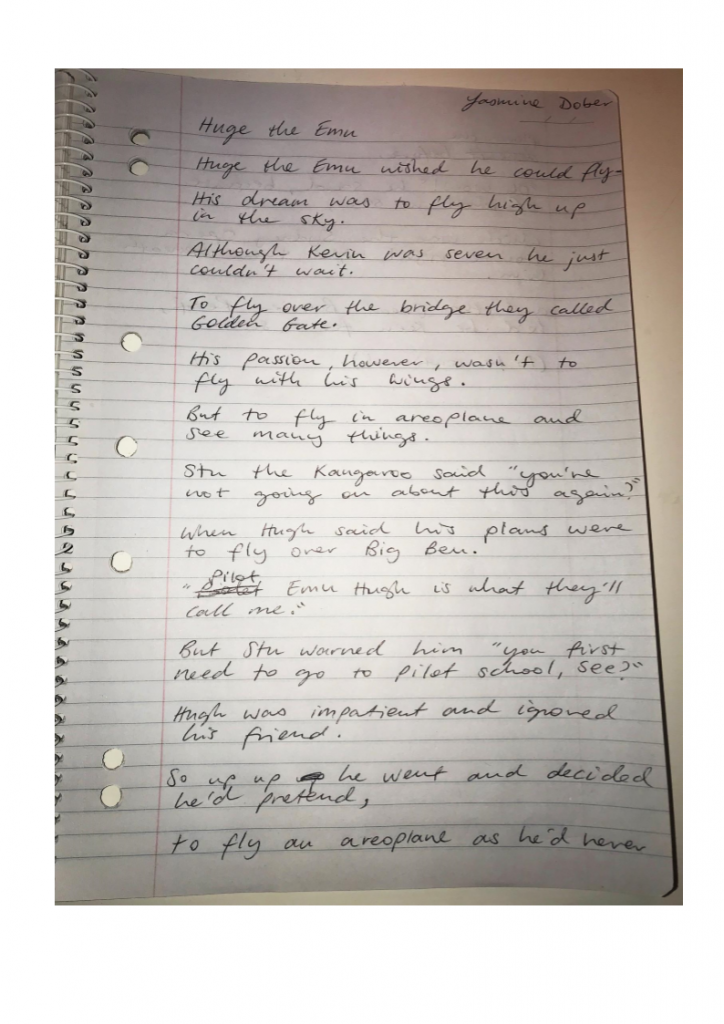 Yasmine Dober
Huge the Emu
Huge the Emu wished he could fly-
His dream was to fly high up
in the sky.
Although Kevin was seven he just
couldn't wait.
To fly over the bridge they called
Golden Gate.
His passion, however, wasn't to
fly with his wings.
But to fly in areoplane and
see many things.
Stu the Kangaroo said "you're
not going on about this again?"
When Hugh said his plans were
to fly over Big Ben.
"Pilot Emu Hugh is what they'll
call me."
But Stu warned him "you first
need to go to pilot school, see?"
Hugh was impatient and ignored
his friend.
So up up he went and decided
he'd pretend,
to fly an areoplane as he'd never